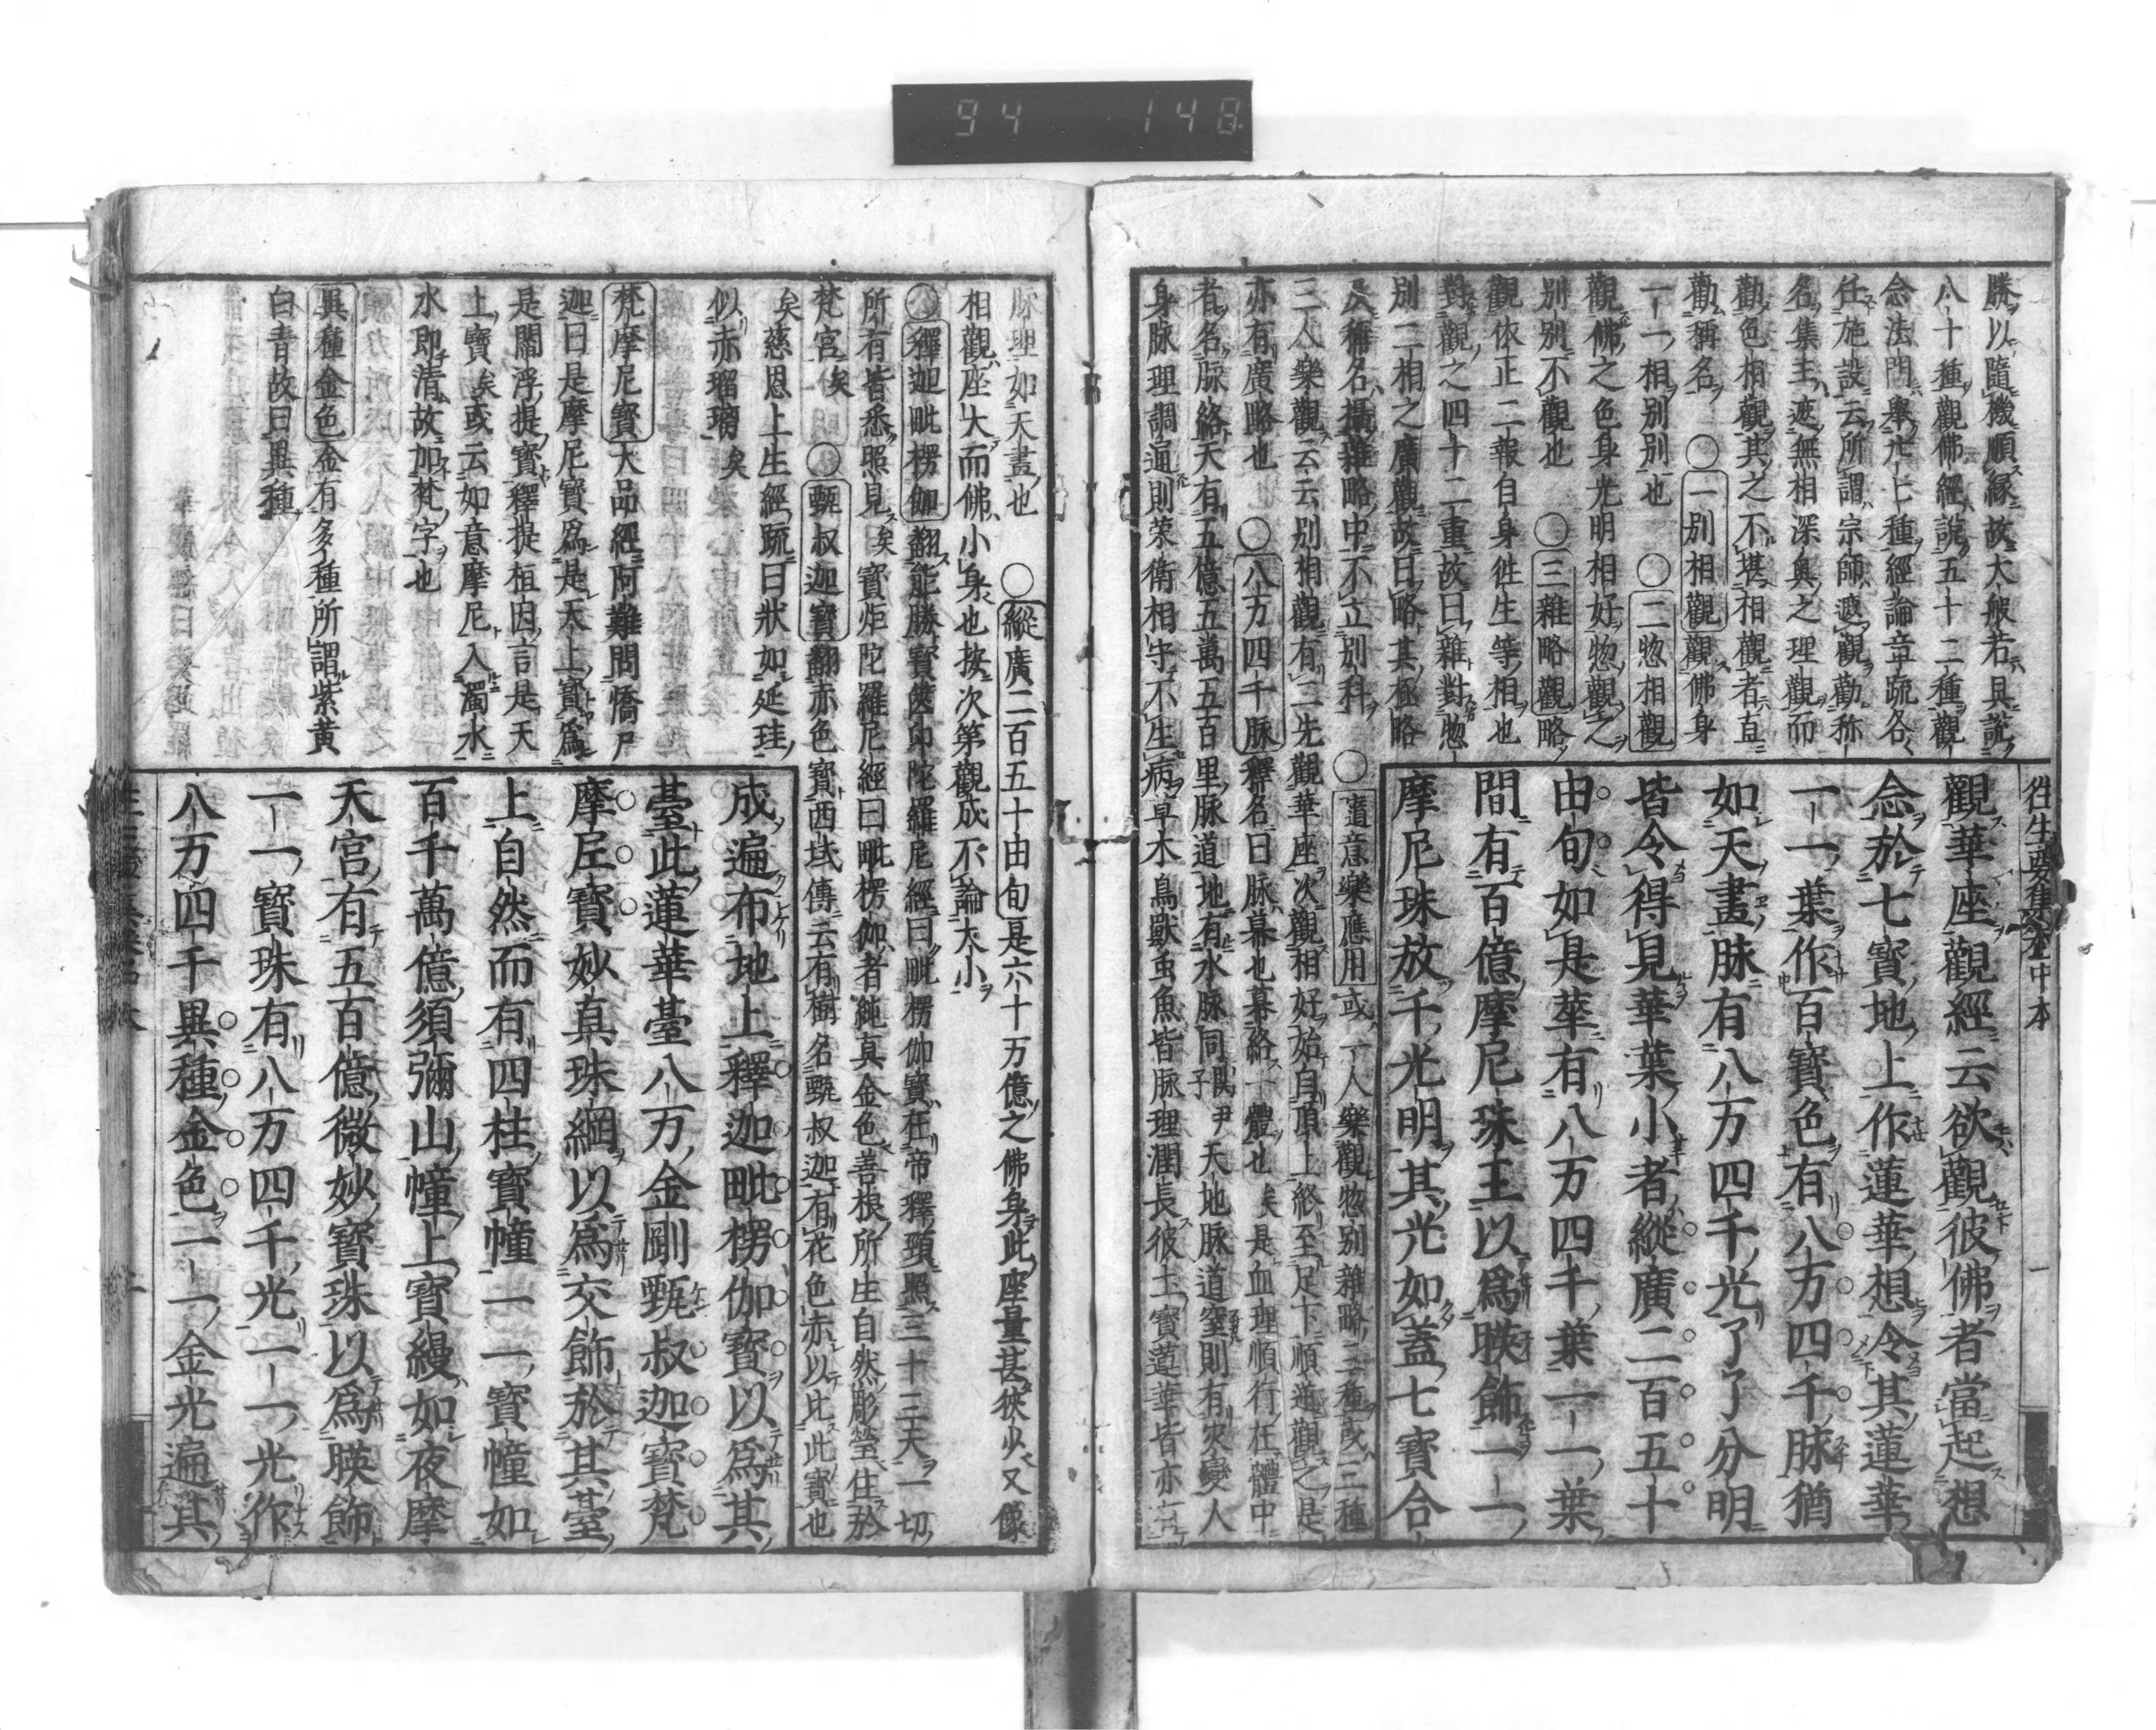 94 148
往生要集 中本 一
勝以隨機順緣故大般若具説
八十種觀佛經説五十二種觀
念法門擧十七種經論章疏各
任施設云所謂宗師遮觀勸称
名集主遮無相深奥之理觀而
勸色相觀其之不堪相觀者直
勸稱名 ○一別相觀觀佛身
一一相別別也 ○二惣相觀
觀佛之色身光明相好惣觀之
別別不觀也 ○三雜略觀略
觀依正二報自身徃生等相也
對觀之四十二重故曰雜對惣
別二相之廣觀故曰略其極略
稱名攝雜略中不立別科 ○隨意樂應用或一人樂觀惣別雜略三種或三種
三人樂觀云云別相觀有三先觀華座次觀相好始自頂上終至足下順逆觀之是
亦有廣略也 ○八万四千脉釋名曰脉幕也幕絡一體也矣是血理順行在體中
者名脉絡天有五億五萬五百里脉道地有水脉同關尹子天地脉道窒則有灾變人
身脉理調適則榮衛相守不生病草木鳥獸虫魚皆脉理潤長彼土寶蓮華皆亦
觀華座觀經云欲觀彼佛者當起想
念於七寶地上作蓮華想令其蓮華
一一葉作百寶色有八万四千脉猶
如天畫脉有八万四千光了了分明
皆令得見華葉小者縱廣二百五十
由旬如是華有八万四千葉一一葉
間有百億摩尼珠王以爲暎飾一一
摩尼珠放千光明其光如蓋七寶合
脉理如天畫也 ○縱廣二百五十由旬是六十万億之佛身此座量甚狹少又像
相觀座大而佛小身也按次第觀成不論大小
○釋迦毗楞伽翻能勝寶篋印陀羅尼經曰毗楞伽寶在帝釋頸照三十三天一切
所有皆悉照見矣寶炬陀羅尼經曰毗楞伽者純真金色善根所生自然彫瑩住於
梵宮矣 ○甄叔迦寶翻赤色寶西域傳云有樹名甄叔迦有花色赤以比此寶也
矣慈恩上生經疏曰狀如延珪
似赤瑠璃矣
梵摩尼寶大品經阿難問憍尸
迦曰是摩尼寶爲是天上寶爲
是閻浮提寶釋提桓因言是天
上寶矣或云如意摩尼入濁水
水即清故加梵字也
異種金色金有多種所謂紫黄
白青故曰異種
成遍布地上釋迦毗楞伽寶以爲其
臺此蓮華臺八万金剛甄叔迦寶梵
摩尼寶妙真珠網以爲交飾於其臺
上自然而有四柱寶幢一一寶幢如
百千萬億須彌山幢上寶縵如夜摩
天宮有五百億微妙寶珠以爲暎飾
一一寶珠有八万四千光一一光作
八万四千異種金色一一金光遍其